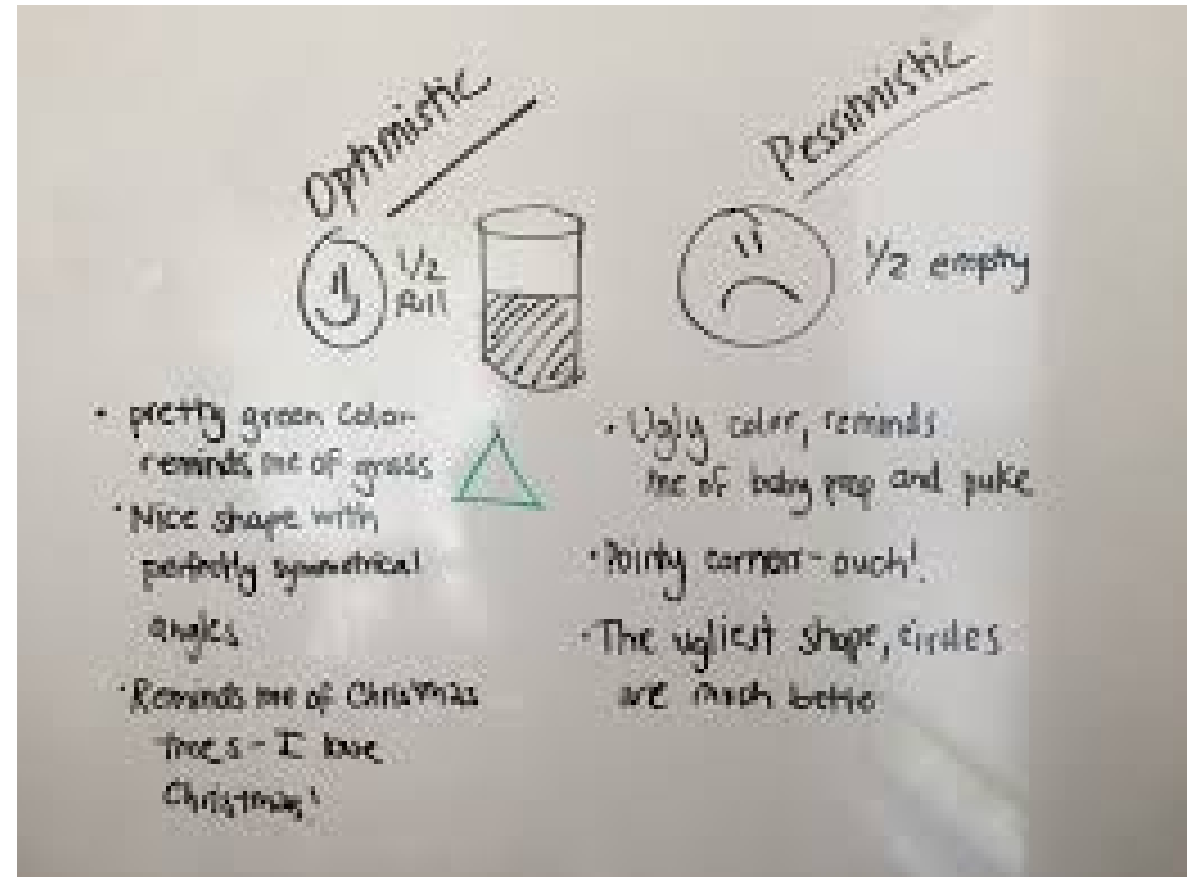 Optimistic
1/2
full
• pretty green color
reminds me of grass
• Nice shape with
perfectly symmetrical
angles
• Reminds me of Christmas
trees - I love
Christmas!
Pessimistic
1/2 empty
• Ugly color, reminds
me of baby poop and puke
• Pointy corner - ouch!
• The ugliest shape, circles
are much